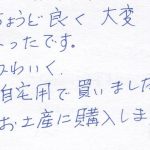 ちょうど良く 大変
ったです。
わいく.
自宅用で買いました
お土産に購入しま